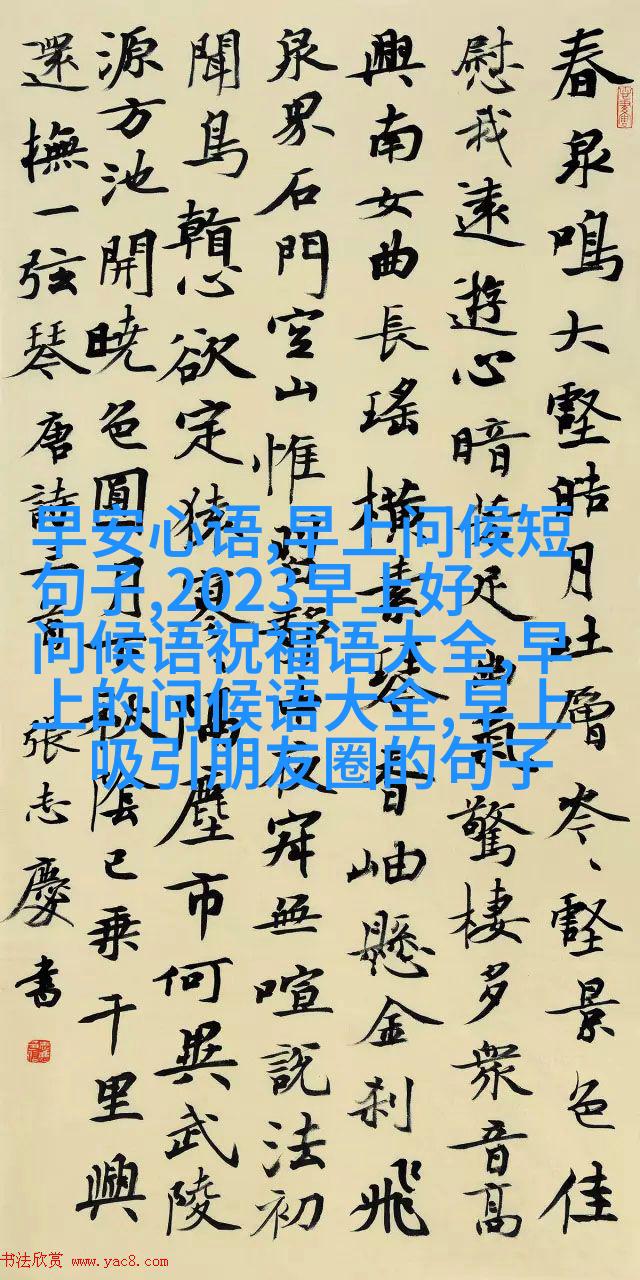 春泉鳴大壑皓月吐層岑、壑景色佳
慰我遠遊心暗足幽氣驚棲多衆音高
興南女曲長瑤橫素琴香岫懸金刹飛
泉界石門空山惟習靜中夜寂無喧說法初
聞鳥心欲定猿寥隔塵市何異武陵
源方池開曉色圓月下秋陰已乘千里興
還撫一弦琴 唐詩二首 張志慶書
早安心语,早上问候短
句子,2023早上好
问候语祝福语大全,早
上的问候语大全,早上
吸引朋友圈的句子
书法欣赏 www.yac8.com